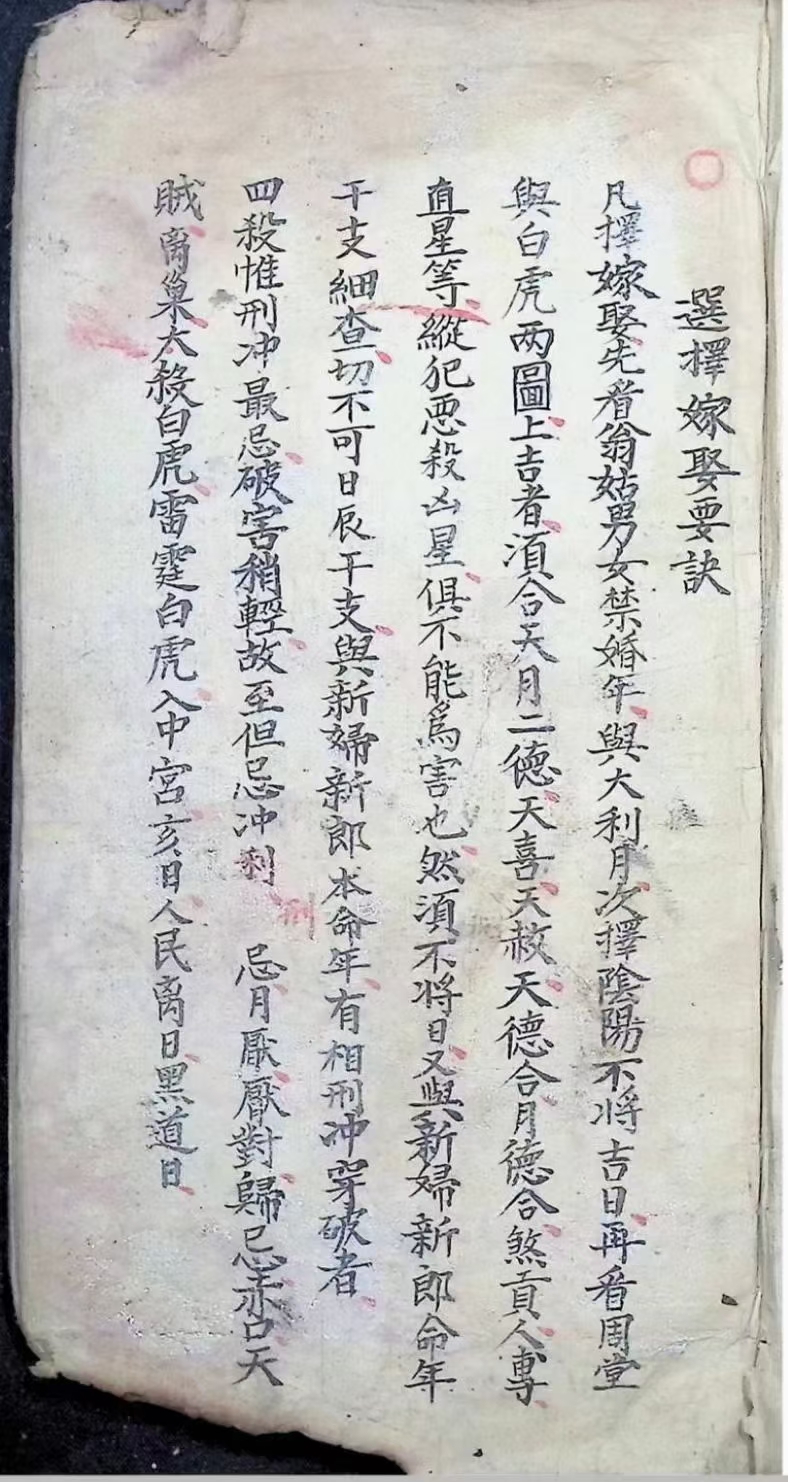 選擇嫁娶要訣
凡擇嫁娶先看翁姑男女禁婚年與大利月次擇陰陽不將吉日再看周堂
與白虎兩圖上吉者須合天月二德天喜天赦天德合月德合煞貢人專
直星等縱犯惡殺凶星俱不能爲害也然須不將日又與新婦新郎命年
干支細查一切不可日辰干支與新婦新郎本命年有相刑冲穿破者
四殺惟刑冲最忌破害稍輕故至但忌冲利刑 忌月厭厭對歸忌赤口天
賊离巢大殺白虎雷霆白虎入中宮亥日人民离日黑道日